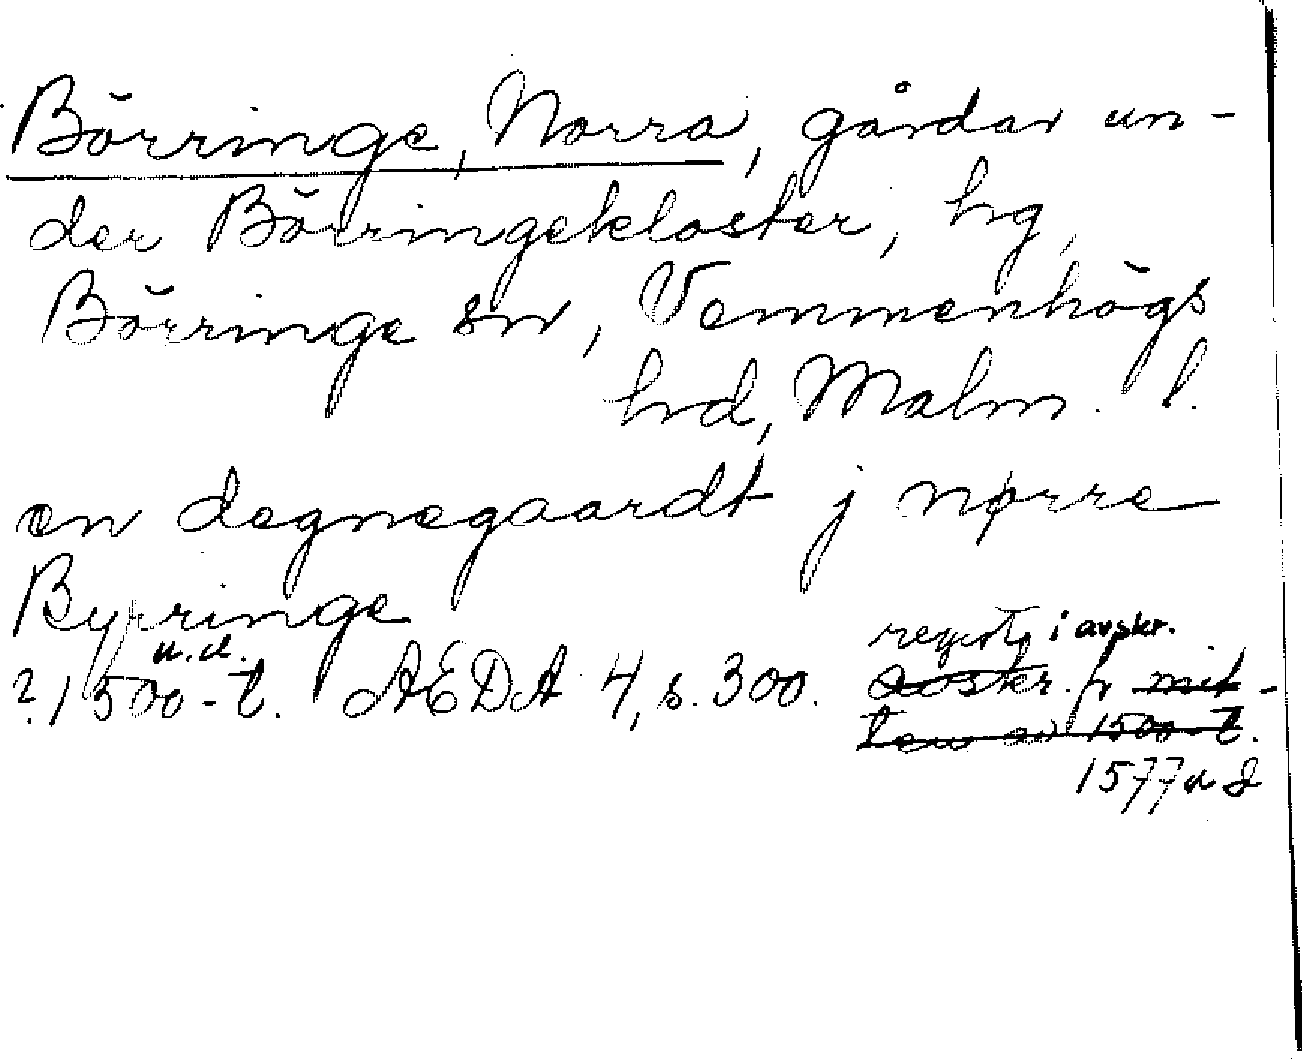 Börringe, Norra, gårdar un-
der Börringekloster, hg,
Börringe sn, Vemmenhögs
hrd, Malm. l.
en degnegaardt j nørre
Byrringe
u.d. regest i avskr.
? 1500-t. AEDA 4, s. 300. avskr. fr mit-
ten av 1500-t.
1577 u d